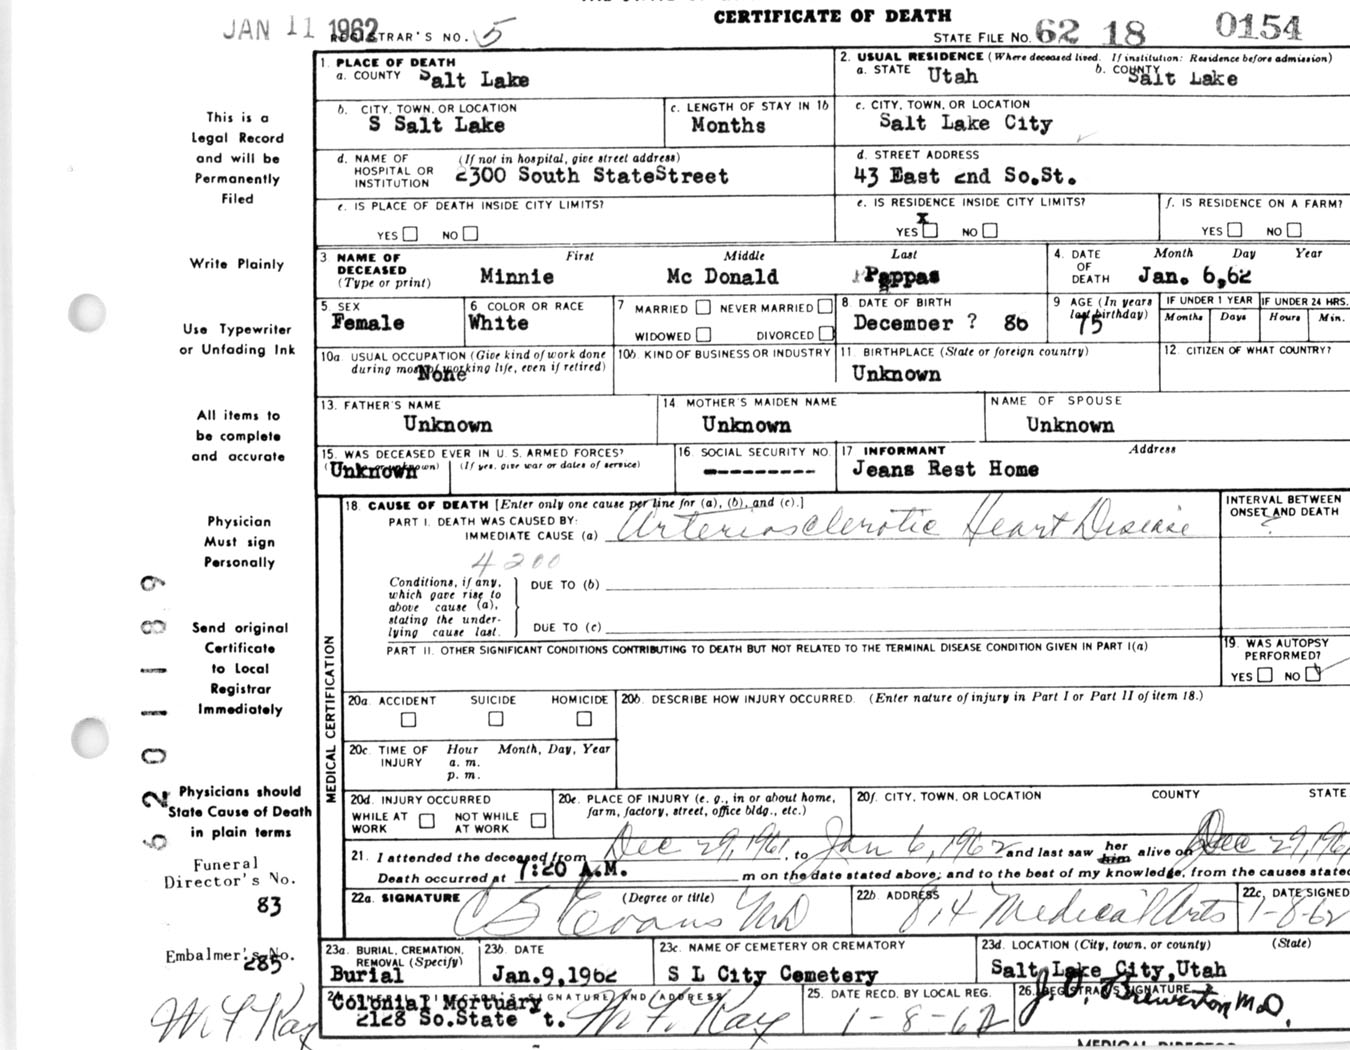 CERTIFICATE OF DEATH
JAN 11 1962 REGISTRAR'S NO. 5 STATE FILE NO. 62 18 0154
1. PLACE OF DEATH
a. COUNTY Salt Lake
2. USUAL RESIDENCE (Where deceased lived. If institution: Residence before admission)
a. STATE Utah b. COUNTY Salt Lake
b. CITY, TOWN, OR LOCATION
S Salt Lake
c. LENGTH OF STAY IN 1b
Months
c. CITY, TOWN, OR LOCATION
Salt Lake City
d. NAME OF HOSPITAL OR INSTITUTION (If not in hospital, give street address)
2300 South StateStreet
d. STREET ADDRESS
43 East 2nd So.St.
e. IS PLACE OF DEATH INSIDE CITY LIMITS?
YES NO
e. IS RESIDENCE INSIDE CITY LIMITS?
X
YES NO
f. IS RESIDENCE ON A FARM?
YES NO
3 NAME OF DECEASED (Type or print)
First Middle Last
Minnie Mc Donald Pappas
4. DATE OF DEATH
Month Day Year
Jan. 6,62
5 SEX
Female
6 COLOR OR RACE
White
7 MARRIED NEVER MARRIED
WIDOWED DIVORCED
8 DATE OF BIRTH
December ? 86
9 AGE (In years last birthday)
75
IF UNDER 1 YEAR
Months Days
IF UNDER 24 HRS.
Hours Min.
10a. USUAL OCCUPATION (Give kind of work done during most of working life, even if retired)
None
10b. KIND OF BUSINESS OR INDUSTRY
11. BIRTHPLACE (State or foreign country)
Unknown
12. CITIZEN OF WHAT COUNTRY?
13. FATHER'S NAME
Unknown
14 MOTHER'S MAIDEN NAME
Unknown
NAME OF SPOUSE
Unknown
15. WAS DECEASED EVER IN U. S. ARMED FORCES?
Unknown (If yes, give war or dates of service)
16. SOCIAL SECURITY NO.
----------
17 INFORMANT Address
Jeans Rest Home
18. CAUSE OF DEATH [Enter only one cause per line for (a), (b), and (c).]
PART I. DEATH WAS CAUSED BY:
IMMEDIATE CAUSE (a) Arteriosclerotic Heart Disease
INTERVAL BETWEEN ONSET AND DEATH
?
4200
Conditions, if any, which gave rise to above cause (a), stating the underlying cause last.
DUE TO (b)
DUE TO (c)
PART II. OTHER SIGNIFICANT CONDITIONS CONTRIBUTING TO DEATH BUT NOT RELATED TO THE TERMINAL DISEASE CONDITION GIVEN IN PART I(a)
19. WAS AUTOPSY PERFORMED?
YES NO
MEDICAL CERTIFICATION
20a. ACCIDENT SUICIDE HOMICIDE
20b. DESCRIBE HOW INJURY OCCURRED. (Enter nature of injury in Part I or Part II of item 18.)
20c. TIME OF INJURY
Hour Month, Day, Year
a. m.
p. m.
20d. INJURY OCCURRED
WHILE AT WORK NOT WHILE AT WORK
20e. PLACE OF INJURY (e. g., in or about home, farm, factory, street, office bldg., etc.)
20f. CITY, TOWN, OR LOCATION COUNTY STATE
21. I attended the deceased from Dec 29, 1961, to Jan 6, 1962 and last saw her him alive on Dec 29, 196
Death occurred at 7:20 A.M. m on the date stated above; and to the best of my knowledge, from the causes stated
22a. SIGNATURE (Degree or title)
C S Evans MD
22b. ADDRESS
814 Medical Arts
22c. DATE SIGNED
1-8-62
23a. BURIAL, CREMATION, REMOVAL (Specify)
Burial
23b. DATE
Jan.9,1962
23c. NAME OF CEMETERY OR CREMATORY
S L City Cemetery
23d. LOCATION (City, town, or county) (State)
Salt Lake City,Utah
SIGNATURE AND ADDRESS
Colonial Mortuary
2128 So.State t. M. F. Kay
25. DATE RECD. BY LOCAL REG.
1-8-62
26. REGISTRAR'S SIGNATURE
J. D. Brewerton M.D.
MEDICAL DIRECTOR
This is a
Legal Record
and will be
Permanently
Filed
Write Plainly
Use Typewriter
or Unfading Ink
All items to
be complete
and accurate
Physician
Must sign
Personally
Send original
Certificate
to Local
Registrar
Immediately
Physicians should
State Cause of Death
in plain terms
Funeral
Director's No.
83
Embalmer's No.
285
M. F. Kay
62 01 189